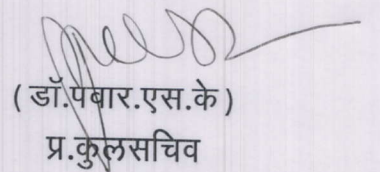 ( डॉ.पवार.एस.के )
प्र.कुलसचिव